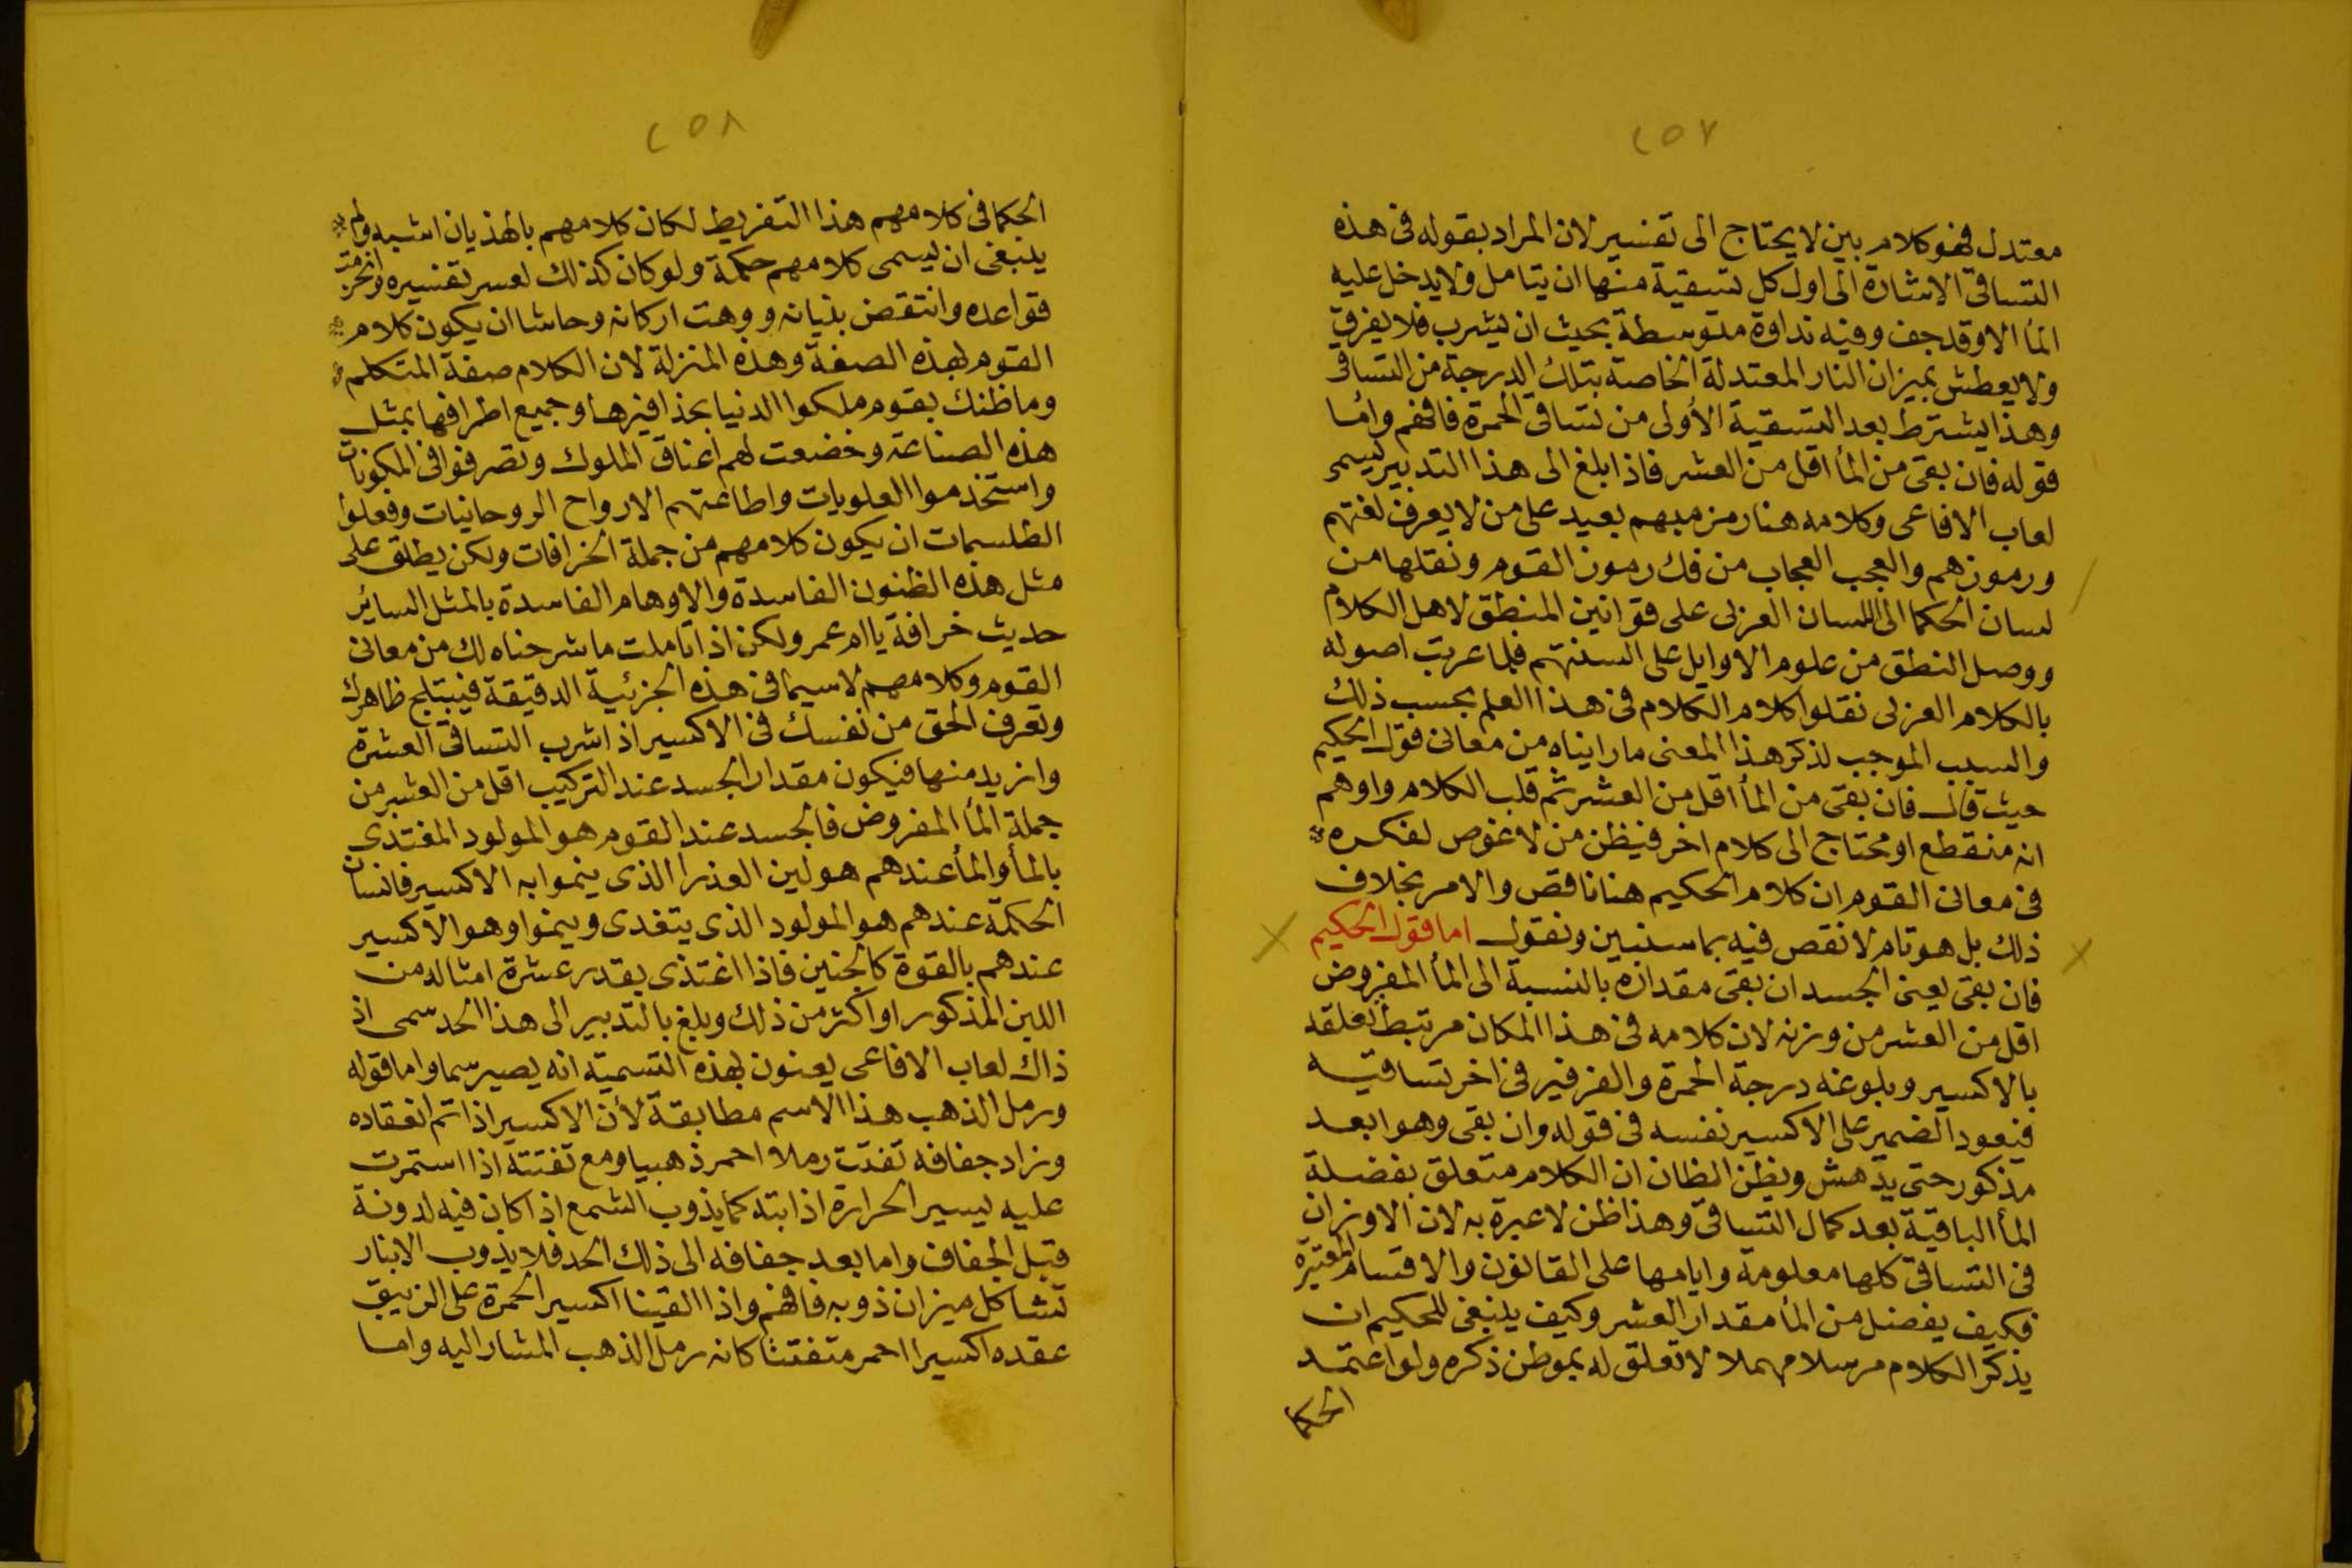 ٢٥٧
معتدل فهو كلام بين لا يحتاج الى تفسير لان المراد بقوله فى هذه
التساقى الاشارة الى اول كل تسقية منها ان يتامل ولا يدخل عليه
المأ الا وقد جف وفيه نداوة متوسطة بحيث ان يشرب فلا يغرق
ولا يعطش بميزان النار المعتدلة الخاصة بتلك الدرجة من التساقى
وهذا يشترط بعد التسقية الأولى من تساقى الحمرة فافهم واما
قوله فان بقى من المأ اقل من العشر فاذا بلغ الى هذا التدبير يسمى
لعاب الافاعى وكلامه هنا رمز مبهم بعيد على من لا يعرف لغتهم
ورموزهم والعجب العجاب من فك رموز القوم ونقلها من
لسان الحكما الى اللسان العربى على قوانين المنطق لاهل الكلام
ووصل النطق من علوم الاوايل على السنتهم فلما عربت اصوله
بالكلام العربى نقلوا كلام الكلام فى هذا العلم بحسب ذلك
والسبب الموجب لذكر هذا المعنى ما رايناه من معانى قول الحكيم
حيث قال فان بقى من المأ اقل من العشر ثم قلب الكلام واوهم
انه منقطع او محتاج الى كلام اخر فيظن من لا غوص لفكره
فى معانى القوم ان كلام الحكيم هنا ناقص والامر بخلاف
ذلك بل هو تام لا نقص فيه بما سنبين ونقول اما قول الحكيم
فان بقى يعنى الجسد ان بقى مقداره بالنسبة الى المأ المفروض
اقل من العشر من وزنه لان كلامه فى هذا المكان مرتبط بعلقه
بالاكسير وبلوغه درجة الحمرة والفرفير فى اخر تساقيه
فيعود الضمير على الاكسير نفسه فى قوله وان بقى وهو ابعد
مذكور حتى يدهش ويظن الظان ان الكلام متعلق بفضلة
المأ الباقية بعد كمال التساقى وهذا ظن لا عبرة به لان الاوزان
فى التساقى كلها معلومة وايامها على القانون والاقسام المعتبرة
فكيف يفضل من المأ مقدار العشر وكيف ينبغى للحكيم ان
يذكر الكلام مرسلا مهملا لا تعلق له بموطن ذكره ولو اعتمد
الحكما
٢٥٨
الحكما فى كلامهم هذا التفريط لكان كلامهم بالهذيان اشبه ولم
ينبغى ان يسمى كلامهم حكمة ولو كان كذلك لعسر تفسيره وانخرمت
قواعده وانتقض بنيانه ووهت اركانه وحاشا ان يكون كلام
القوم لهذه الصفة وهذه المنزلة لان الكلام صفة المتكلم
وما ظنك بقوم ملكوا الدنيا بحذافيرها وجميع اطرافها بمثل
هذه الصناعة وخضعت لهم اعناق الملوك وتصرفوا فى المكونات
واستخدموا العلويات واطاعتهم الارواح الروحانيات وفعلوا
الطلسمات ان يكون كلامهم من جملة الخرافات ولكن يطلق على
مثل هذه الظنون الفاسدة والاوهام الفاسدة بالمثل السائر
حديث خرافة يا ام عمر ولكن اذا تاملت ما شرحناه لك من معانى
القوم وكلامهم لاسيما فى هذه الجزئية الدقيقة فيبتلج ظاهرك
وتعرف الحق من نفسك فى الاكسير اذا شرب التساقى العشرة
وازيد منها فيكون مقدار الجسد عند التركيب اقل من العشر من
جملة المأ المفروض فالجسد عند القوم هو المولود المغتذى
بالمأ والمأ عندهم هو لبن العذرا الذى ينموا به الاكسير فانسان
الحكمة عندهم هو المولود الذى يتغدى وينموا وهو الاكسير
عندهم بالقوة كالجنين فاذا اغتذى بقدر عشرة امثاله من
اللبن المذكور او اكثر من ذلك وبلغ بالتدبير الى هذا الحد سمى اذ
ذاك لعاب الافاعى يعنون لهذه التسمية انه يصير سما واما قوله
ورمل الذهب هذا الاسم مطابقة لأن الاكسير اذا تم انعقاده
وزاد جفافه تفتت رملا احمر ذهبيا ومع تفتته اذا استمرت
عليه يسير الحرارة اذابته كما يذوب الشمع اذا كان فيه لدونة
قبل الجفاف واما بعد جفافه الى ذلك الحد فلا يذوب الا بنار
تشاكل ميزان ذوبه فافهم واذا القينا اكسير الحمرة على الزيبق
عقده اكسيرا احمر متفتتا كانه رمل الذهب المشار اليه واما